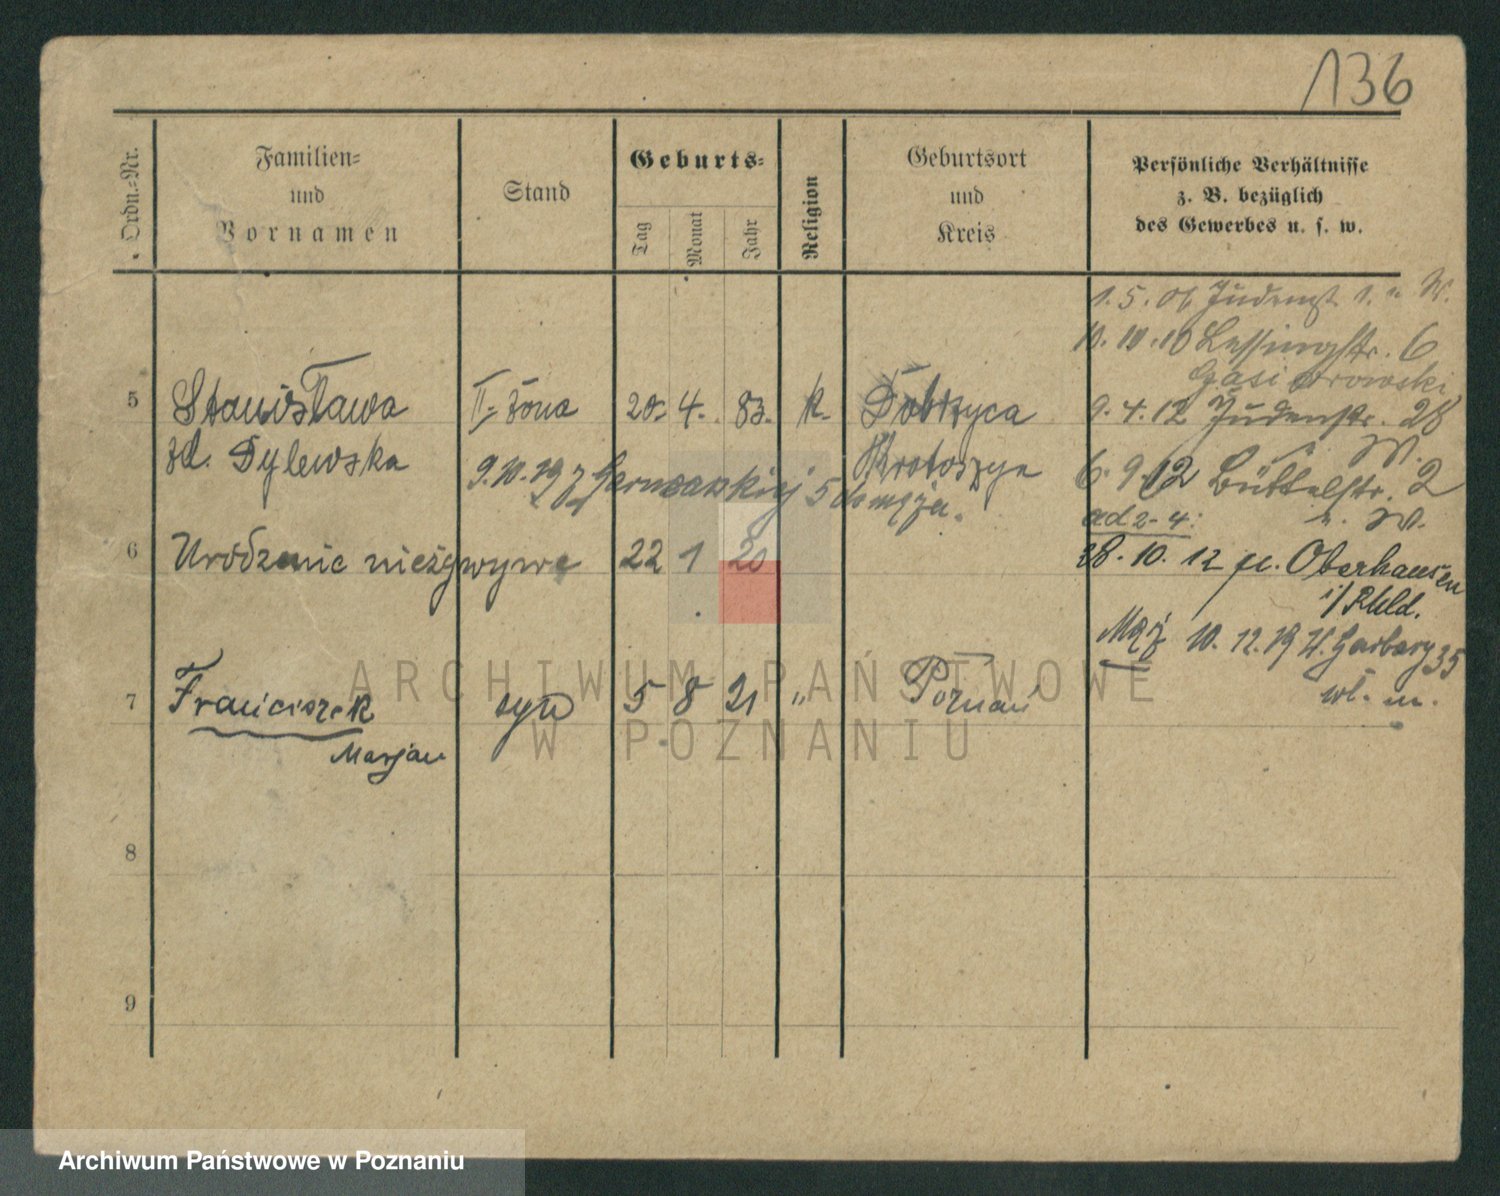 136
Ordn.-Nr.
Familien-
und
Vornamen
Stand
Geburts-
Tag
Monat
Jahr
Religion
Geburtsort
und
Kreis
Persönliche Verhältnisse
z. B. bezüglich
des Gewerbes u. s. w.
1. 5. 06 Judenstr. 1. v. W.
10. 10. 10 Lessingstr. 6
Gąsiorowski
5 Stanisława II. żona 20. 4. 83. k. Dobrzyca
9. 4. 12 Judenstr. 28
v. W.
zd. Dylewska Krotoszyn
9. 10. 19 z 5 do męża.
6. 9. 12 Büttelstr. 2
v. W.
ad 2-4:
6 Urodzenie nieżywe 22 1 20
28. 10. 12 Oberhausen
i/Rhld.
Mąż 10. 12. 19 W. Garbary 35
wł. m.
7 Franciszek syn 5 8 21 " Poznań
Marjan
8
9
ARCHIWUM PAŃSTWOWE
W POZNANIU
Archiwum Państwowe w Poznaniu